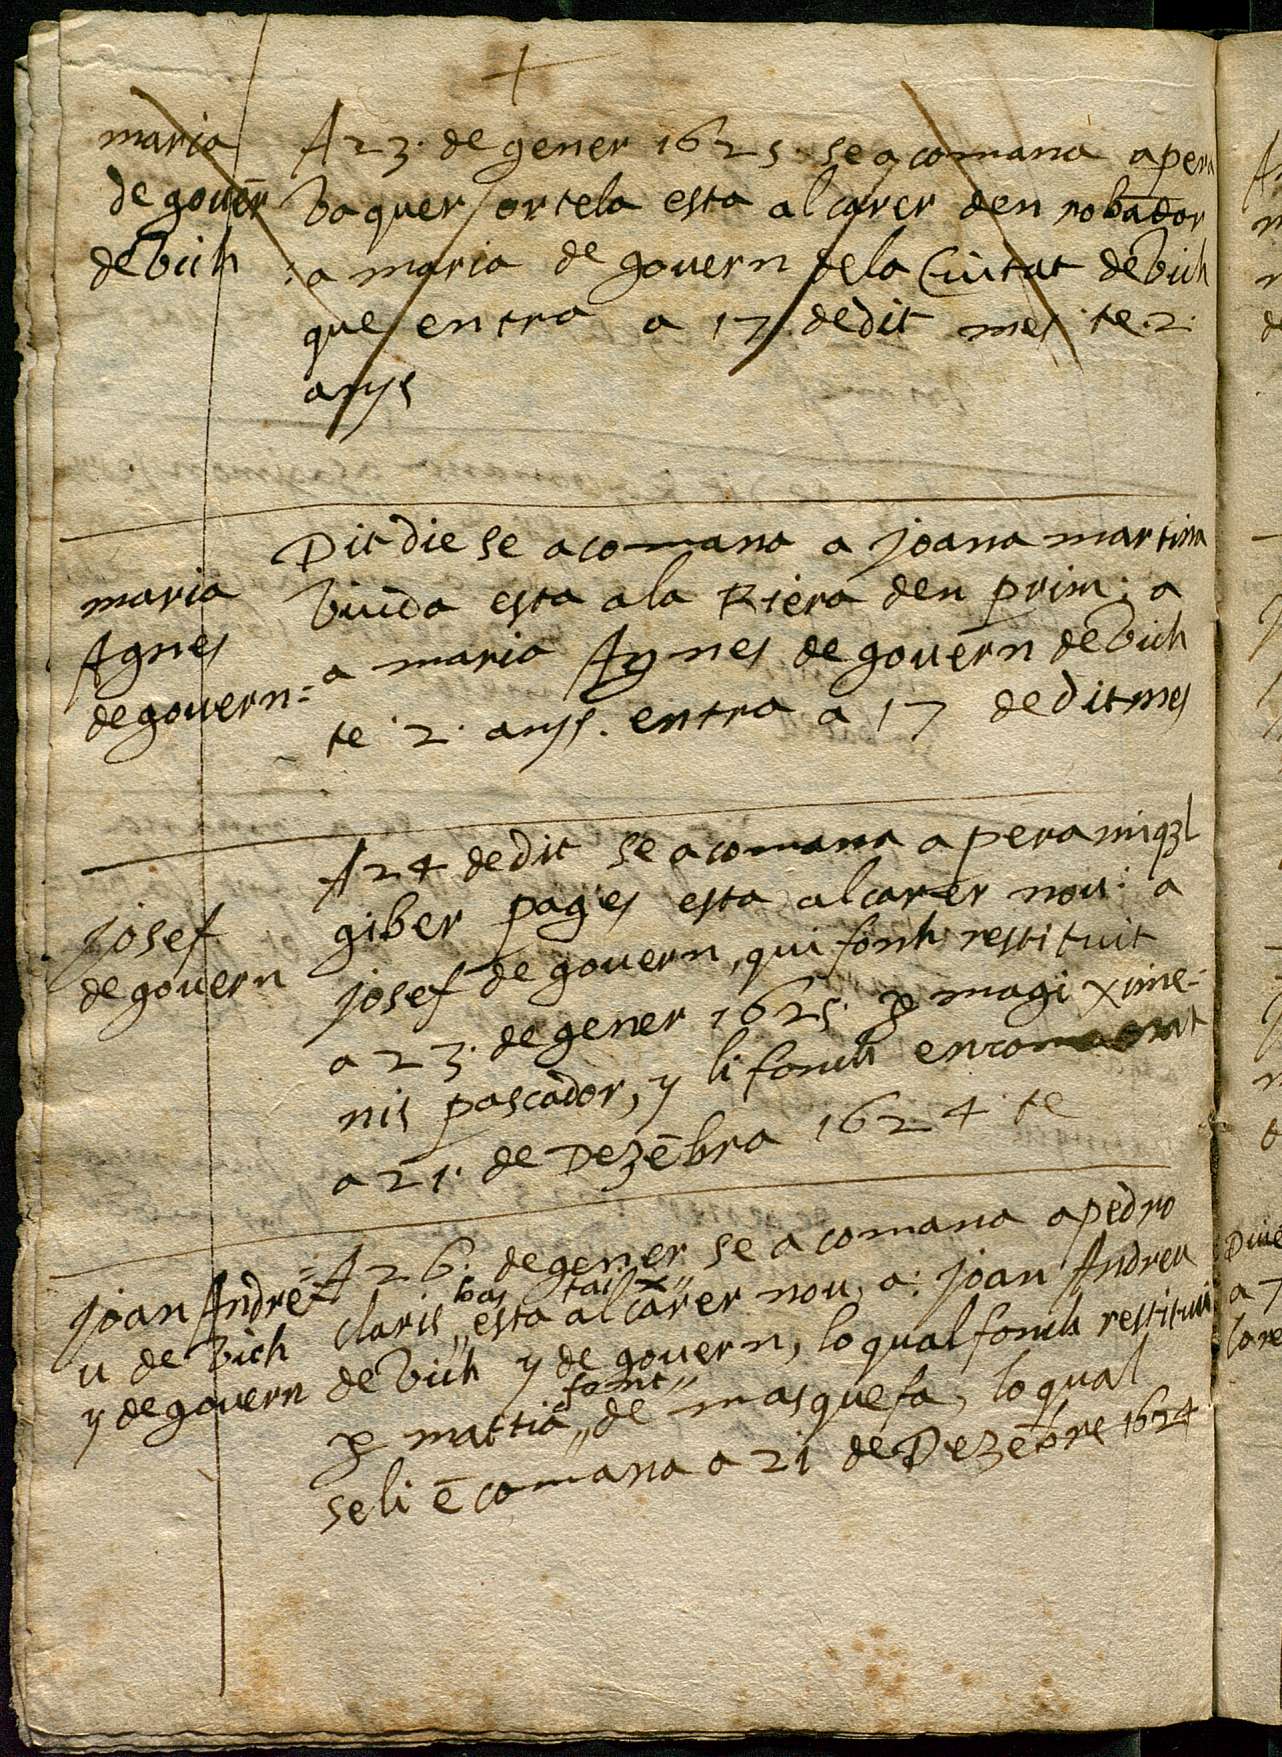 +
maria
de govẽr
de Vich
A 23. de gener 1625. se acomana a pera
Vaquer ortela esta al carer den robador
: a maria de govern de la Ciutat de Vich
que entra a 17 de dit mes te. 2.
anys
maria
Agnes
de govern =
Dit die se acomana a joana martina
viuda esta a la Riera den prim: a
a maria Agnes de govern de Vich
te 2. anys. entra a 17 de dit mes
josef
de govern
A 24 de dit se acomana a pera miq̃l
giber pages esta al carer nou: a
josef de govern, qui fonch restituit
a 23. de gener 1625. ꝑ magi xime-
nis pascador, y li fonch encomanat
a 21. de Dezẽbra 1624 te
joan Andre=
u de Vich
y de govern
A 26. de gener se acomana a pedro
claris,, esta al carer nou, a: joan Andreu
de Vich y de govern, lo qual fonch restituit
ꝑ mattia ,,font,, de masquefa, lo qual
se li ẽcomana a 21 de Dezẽbre 1624
a 7